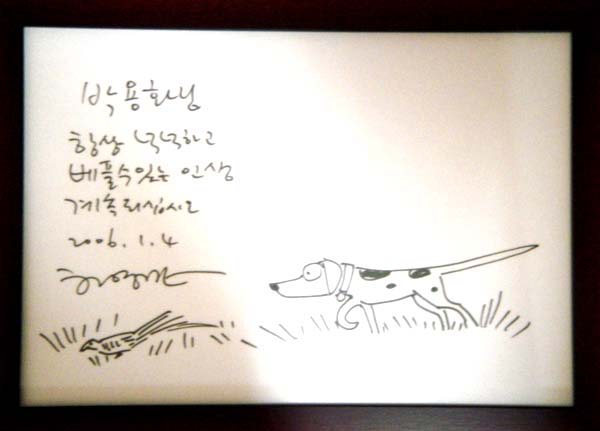 박용화님
항상 넉넉하고
베풀수있는 인생
계속되십시오
2006.1.4